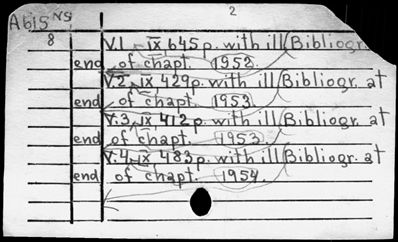 2
A615 NS
8 V.1 IX 645 p. with ill Bibliogr.
end of chapt. 1952.
V.2 IX 429 p. with ill Bibliogr. at
end of chapt. 1953.
V.3 IX 412 p. with ill Bibliogr. at
end of chapt. 1953.
V.4 IX 483 p. with ill Bibliogr. at
end of chapt. 1954.